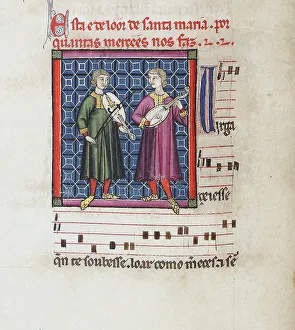 Esta e de loor de santa maria. por
quantas merçees nos faz. L. L.
Uirga
queisse
qm te soubesse. loar como mereces. ⁊ sē